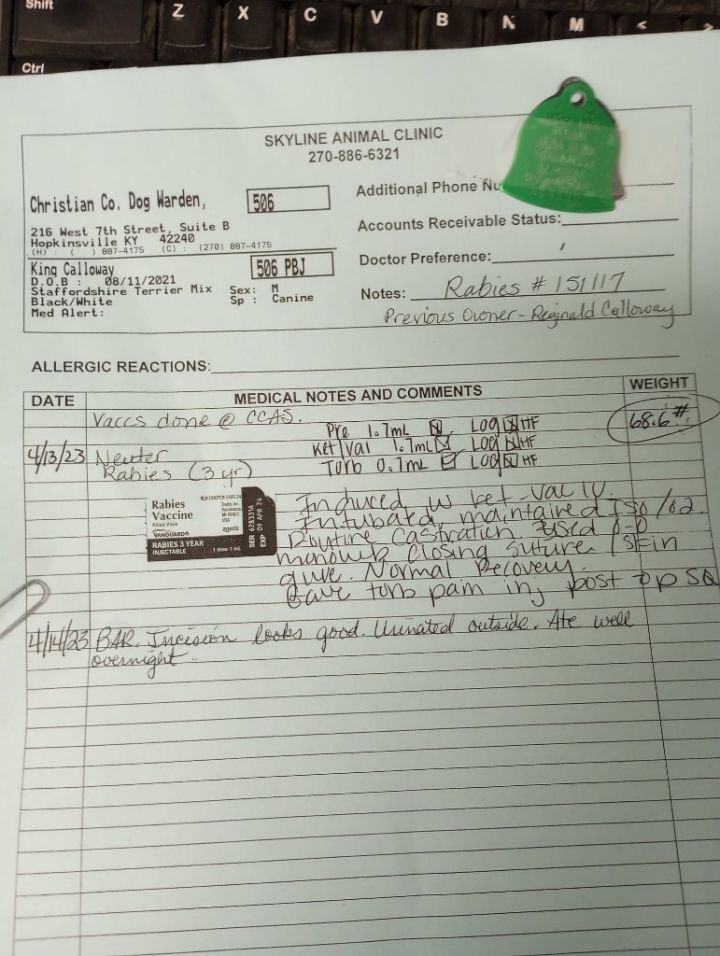 Shift
Z X C V B N M < >
Ctrl
SKYLINE ANIMAL CLINIC
270-886-6321
Christian Co. Dog Warden, 506
216 West 7th Street, Suite B
Hopkinsville KY 42240
(H) ( ) 887-4175 (C) : (270) 887-4175
Additional Phone Nu
Accounts Receivable Status:
Doctor Preference:
King Calloway 506 PBJ
D.O.B : 08/11/2021
Staffordshire Terrier Mix Sex: M
Black/White Sp : Canine
Med Alert:
Notes: Rabies # 151117
Previous Owner - Reginald Calloway
ALLERGIC REACTIONS:
DATE MEDICAL NOTES AND COMMENTS WEIGHT
Vaccs done @ CCAS. 68.6#
Pre 1.7mL LOG HF
4/13/23 Neuter Ket/Val 1.7mL LOG HF
Rabies (3 yr) Torb 0.7mL LOG HF
Rabies
Vaccine
Killed Virus
VANGUARD®
RABIES 3 YEAR
INJECTABLE 1 dose: 1 mL
USA
zoetis
SER 628331A
EXP 09 APR 24
Induced w ket-val IV.
Intubated, maintained Iso/O2.
Routine Castration used 2-0
monowb closing suture. /skin
glue. Normal Recovery.
Gave torb pain inj post op SQ
4/14/23 BAR. Incision looks good. Urinated outside. Ate well
overnight.